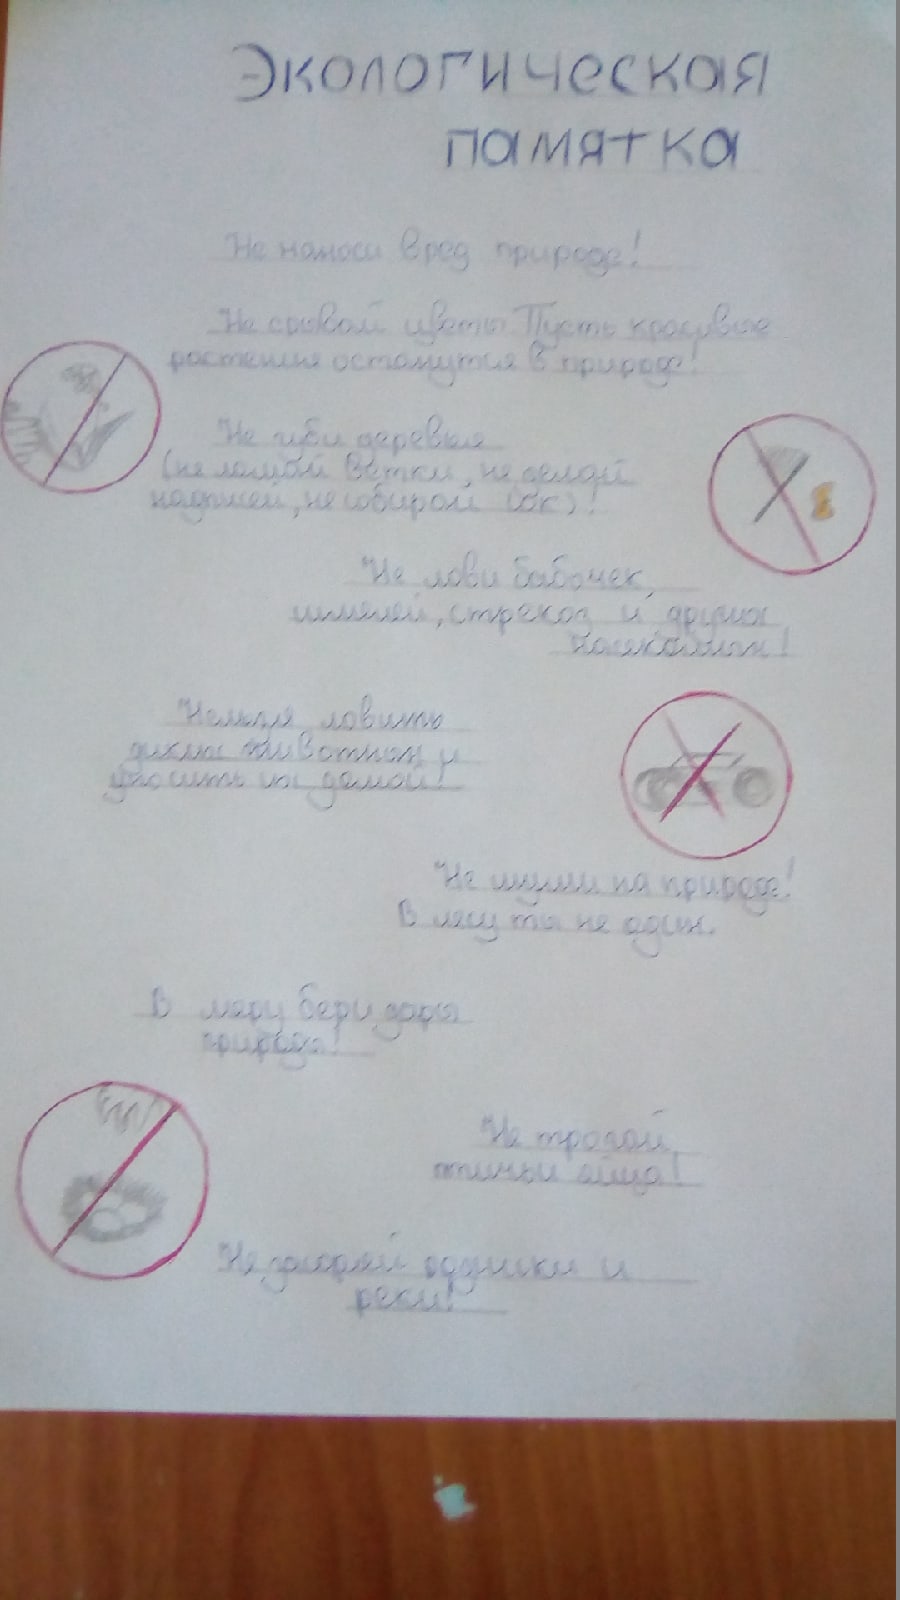 Экологическая
памятка
Не наноси вред природе!
Не срывай цветы. Пусть красивые
растения останутся в природе!
Не губи деревья
(не ломай ветки, не делай
надписей, не собирай сок)!
Не лови бабочек,
шмелей, стрекоз и других
насекомых!
Нельзя ловить
диких животных и
уносить их домой!
Не шуми на природе!
В лесу ты не один.
В меру бери дары
природы!
Не трогай
птичьи яйца!
Не загоряй и
реки!